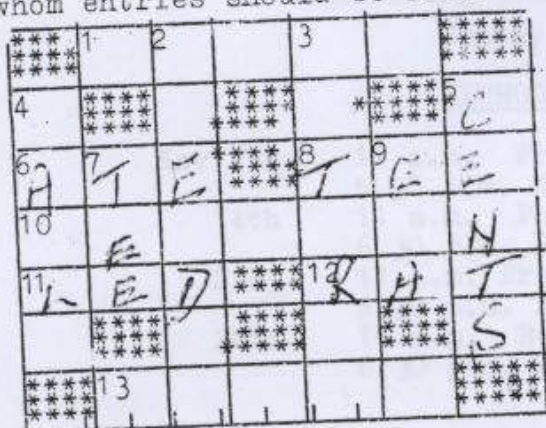 whom entries should
1 2 3
4 5 C
6 A 7 T E 8 T 9 E E
10 E N
11 L E D 12 R A T
S
13